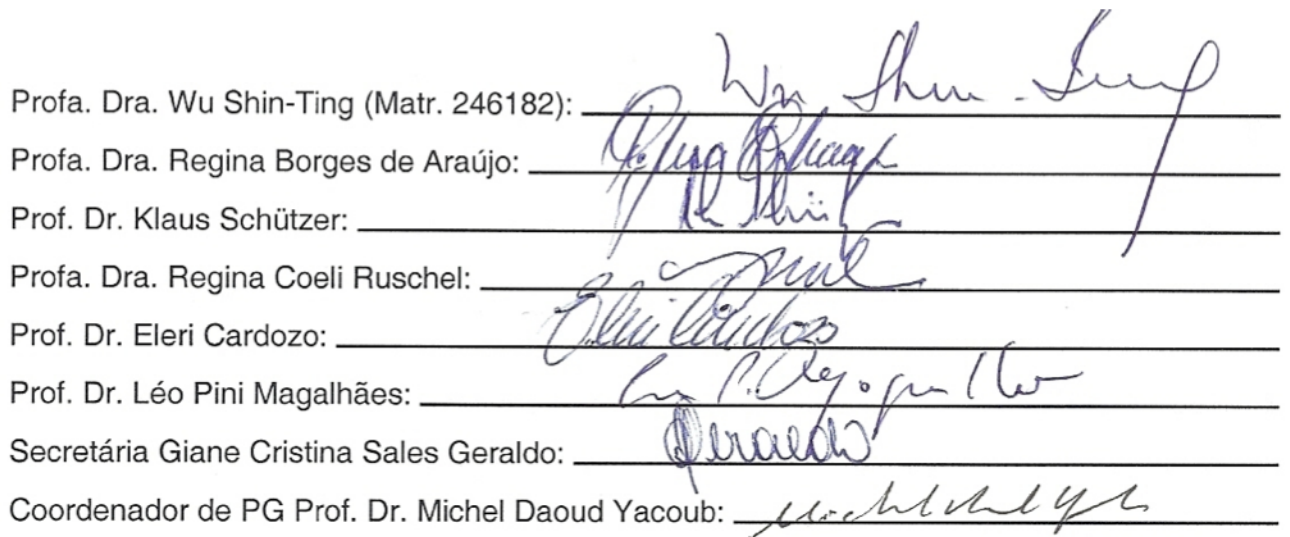 Profa. Dra. Wu Shin-Ting (Matr. 246182): Wu Shin-Ting
Profa. Dra. Regina Borges de Araújo:
Prof. Dr. Klaus Schützer:
Profa. Dra. Regina Coeli Ruschel:
Prof. Dr. Eleri Cardozo: Eleri Cardozo
Prof. Dr. Léo Pini Magalhães:
Secretária Giane Cristina Sales Geraldo: Geraldo
Coordenador de PG Prof. Dr. Michel Daoud Yacoub: